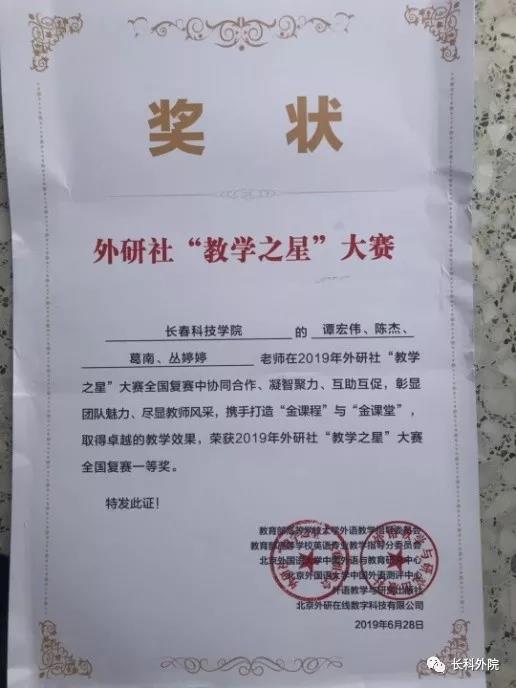 奖 状
外研社“教学之星”大赛
长春科技学院 的 谭宏伟、陈杰、
葛南、丛婷婷 老师在2019年外研社“教学
之星”大赛全国复赛中协同合作、凝智聚力、互助互促，彰显
团队魅力、尽显教师风采，携手打造“金课程”与“金课堂”，
取得卓越的教学效果，荣获2019年外研社“教学之星”大赛
全国复赛一等奖。
特发此证！
教育部高等学校大学外语教学指导委员会
教育部高等学校英语专业教学指导分委员会
北京外国语大学中国外语与教育研究中心
北京外国语大学中国外语测评中心
外语教学与研究出版社
北京外研在线数字科技有限公司
2019年6月28日
长科外院